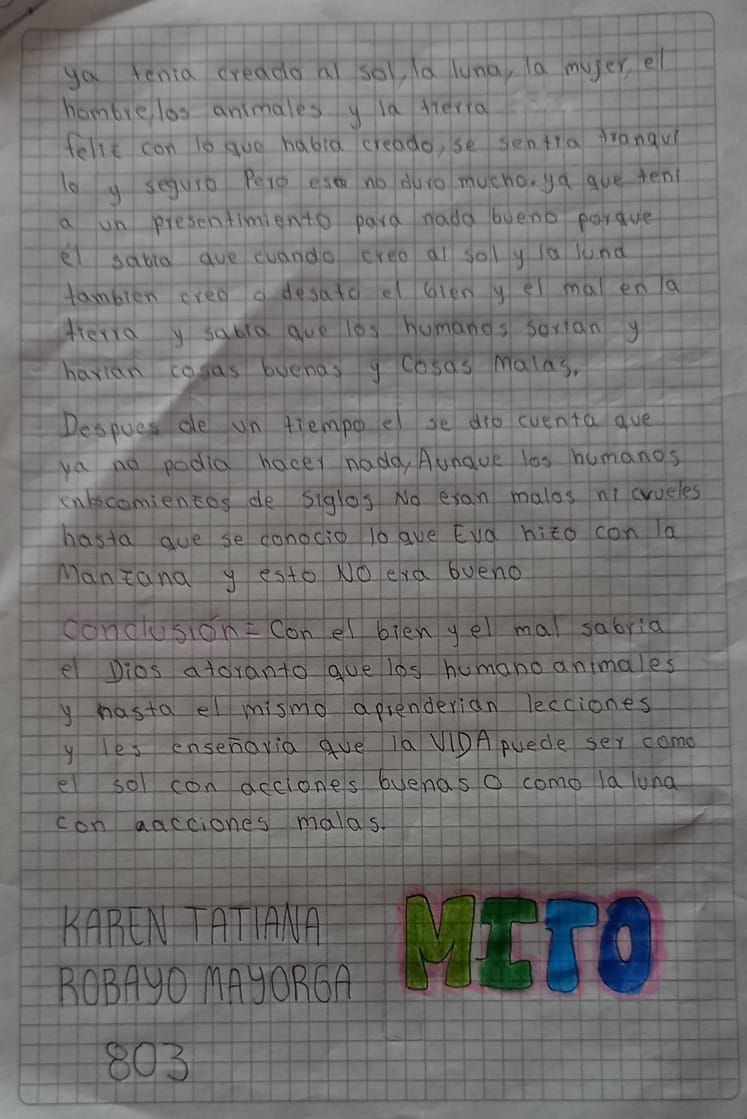 ya tenia creado al sol, la luna, la mujer, el
hombre, los animales y la tierra
feliz con lo que habia creado, se sentia tranqui
lo y seguro Pero eso no duro mucho. ya que teni
a un presentimiento para nada bueno porque
él sabia que cuando creo al sol y la luna
tambien creo o desato el bien y el mal en la
tierra y sabia que los humanos serian y
harian cosas buenas y Cosas Malas.
Despues de un tiempo el se dio cuenta que
ya no podia hacer nada, Aunque los humanos
comienzos de siglos No eran malos ni crueles
hasta que se conocio lo que Eva hizo con la
Manzana y esto NO era bueno
conclusión = Con el bien y el mal sabria
el Dios atoranto que los humano animales
y hasta el mismo aprenderian lecciones
y les enseñaria que la VIDA puede ser como
el sol con acciones buenas O como la luna
con aacciones malas.
KAREN TATIANA MITO
ROBAYO MAYORGA
803